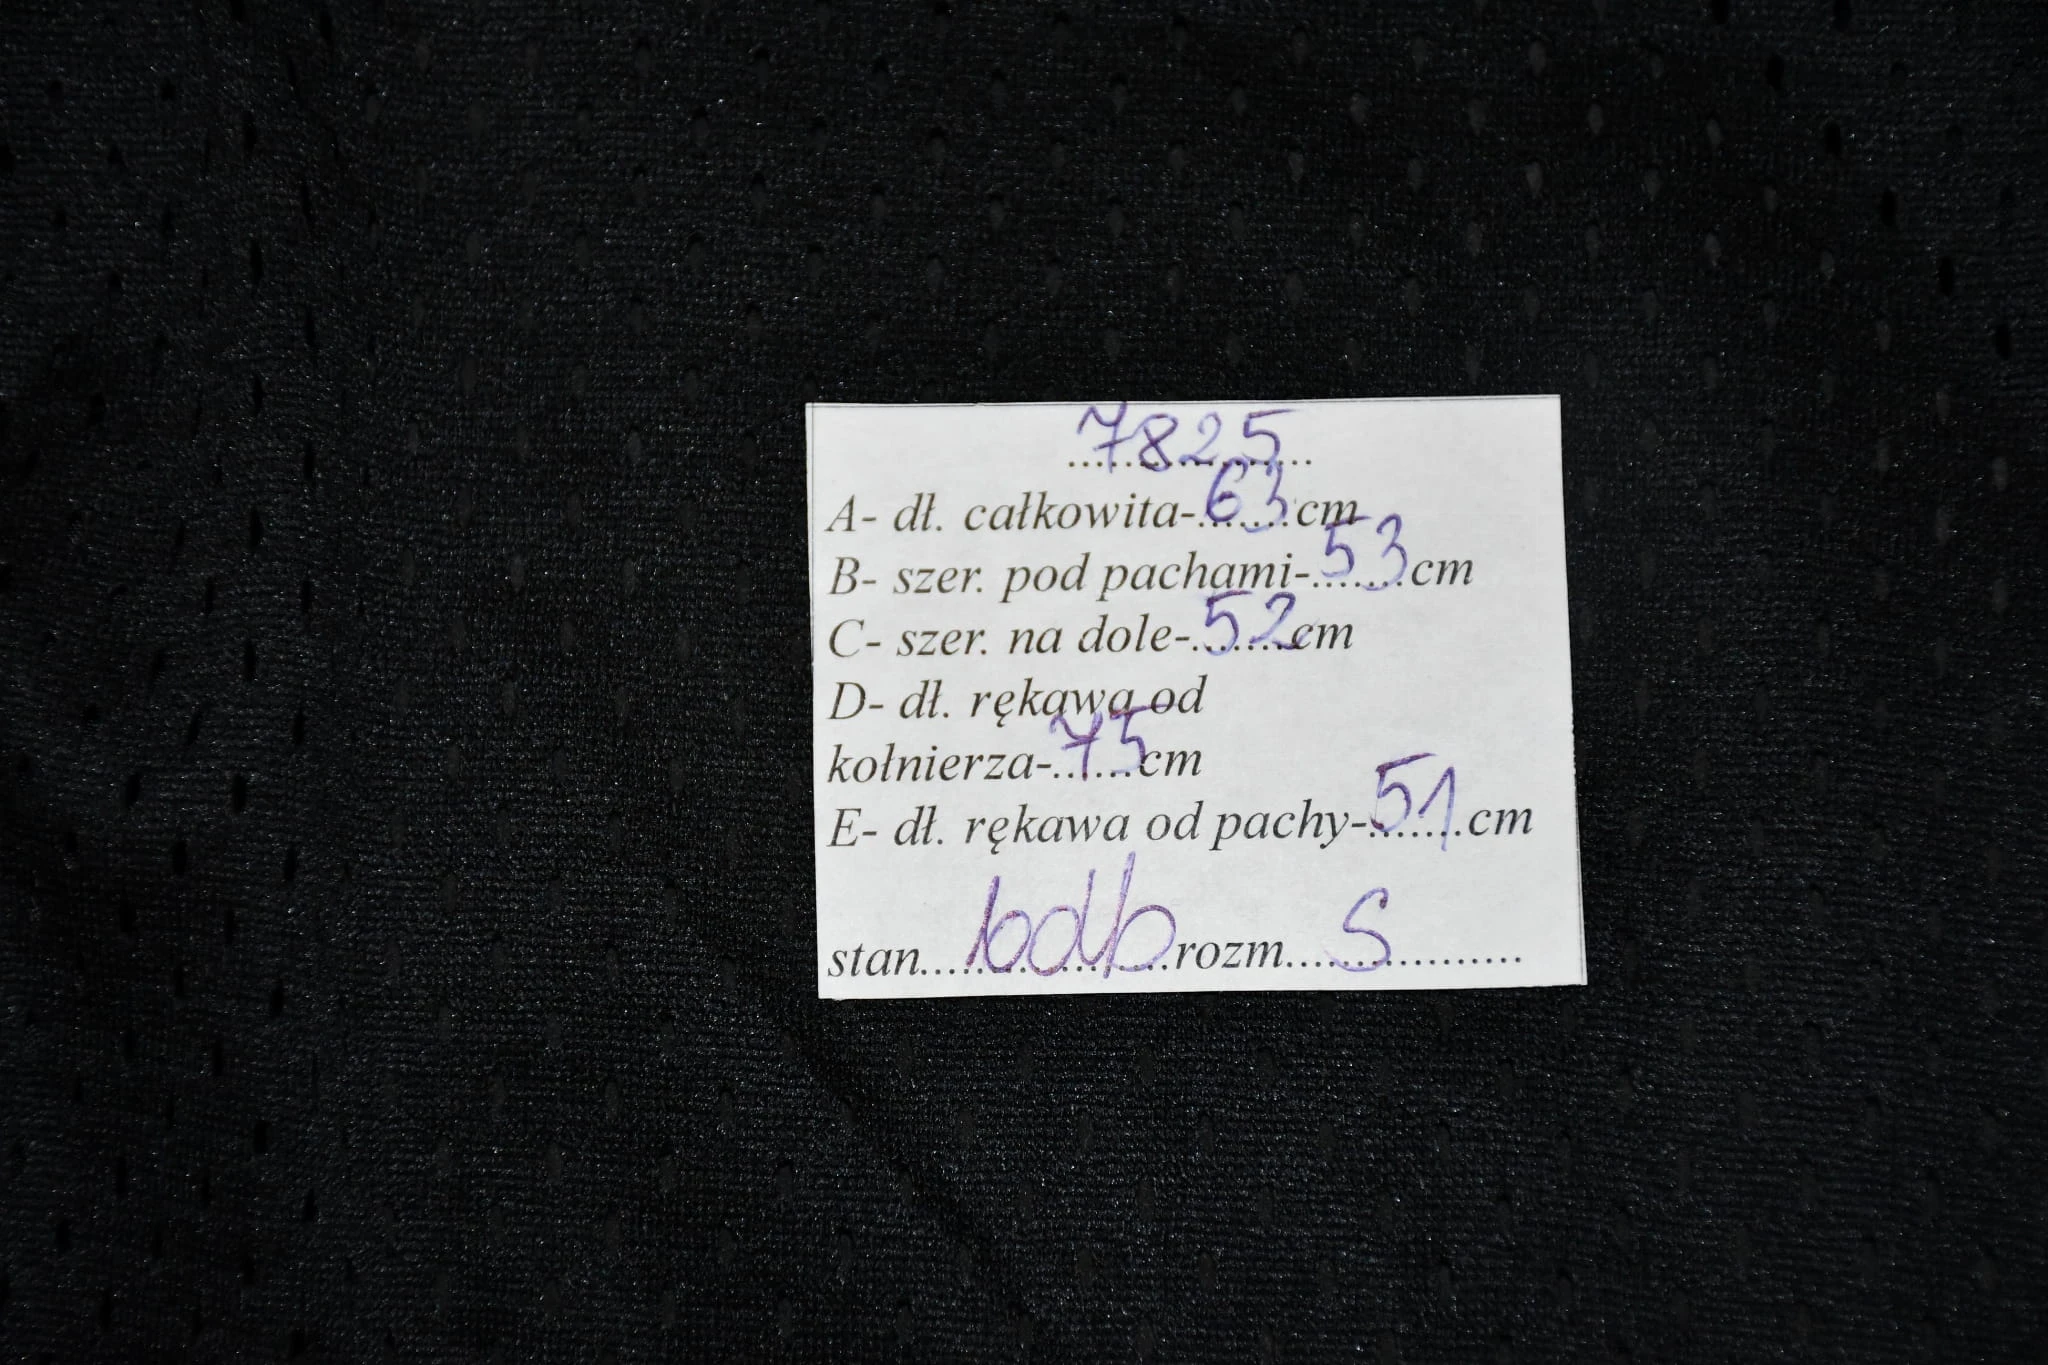 7825
A- dł. całkowita-63cm
B- szer. pod pachami-53cm
C- szer. na dole-52cm
D- dł. rękawa od
kołnierza-75cm
E- dł. rękawa od pachy-51cm
stan...bdb...rozm...S...